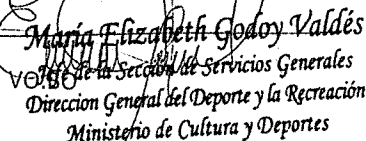 María Elizabeth Godoy Valdés
Vo.Bo. Jefe de la Sección de Servicios Generales
Direccion General del Deporte y la Recreación
Ministerio de Cultura y Deportes